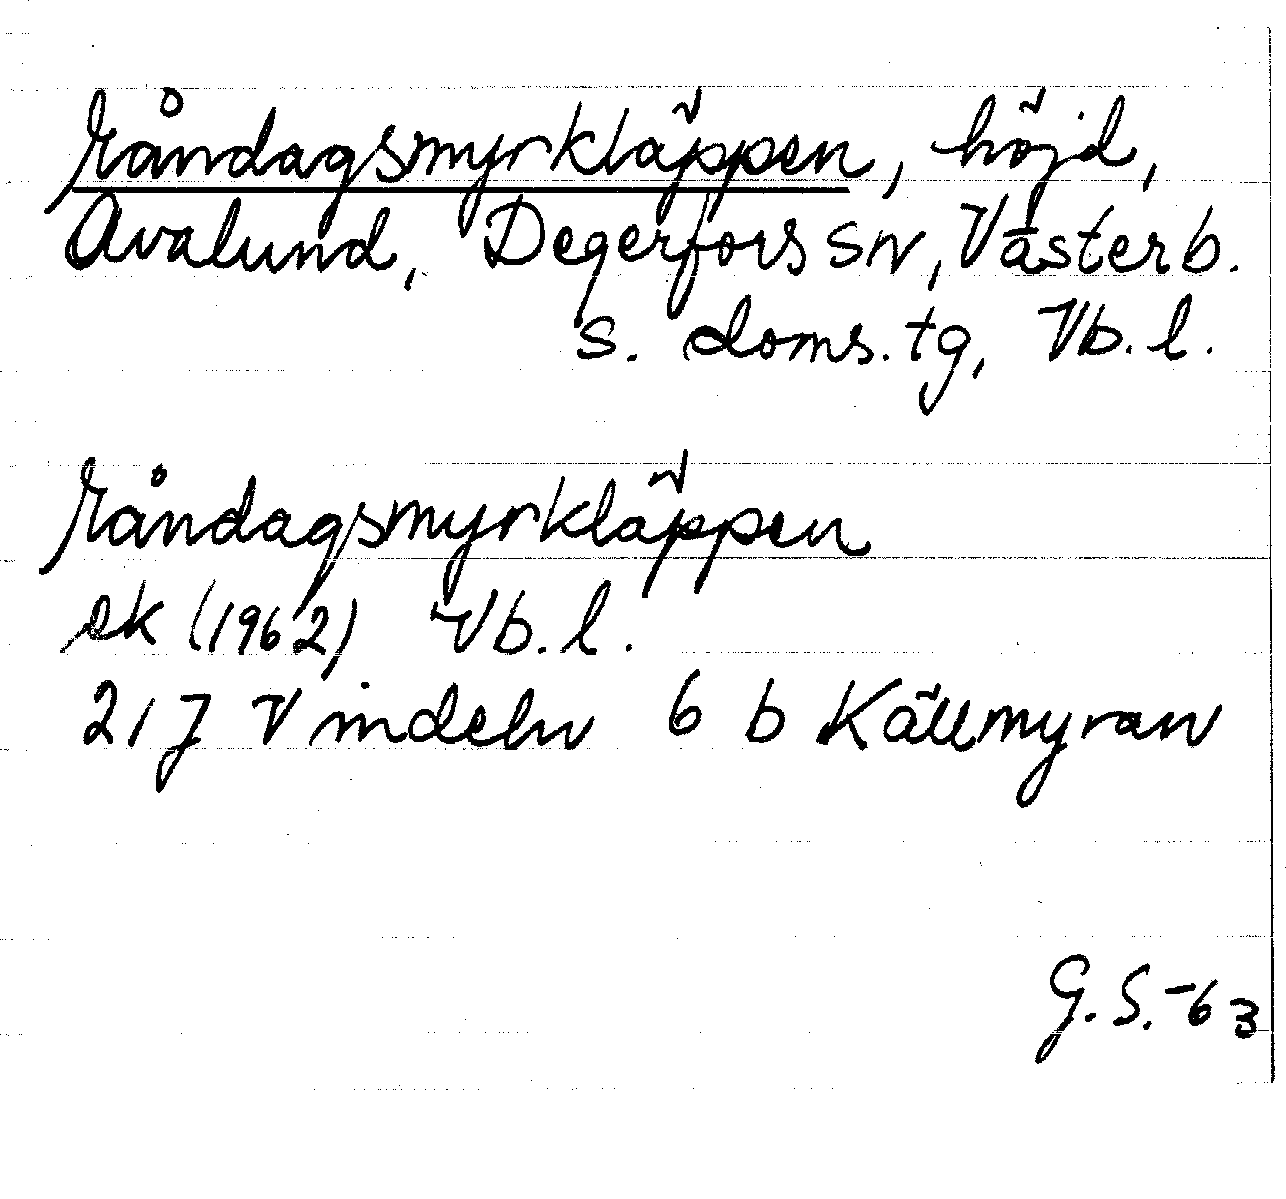 Råndagsmyrkläppen, höjd,
Avalund, Degerfors sn, Västerb.
s. doms. tg, Vb. l.
Råndagsmyrkläppen
ek (1962) Vb. l.
21 J Vindeln 6 b Källmyran
G. S. -63